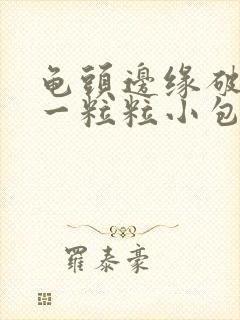 龟頭邊缘破
一粒粒小包
羅泰豪